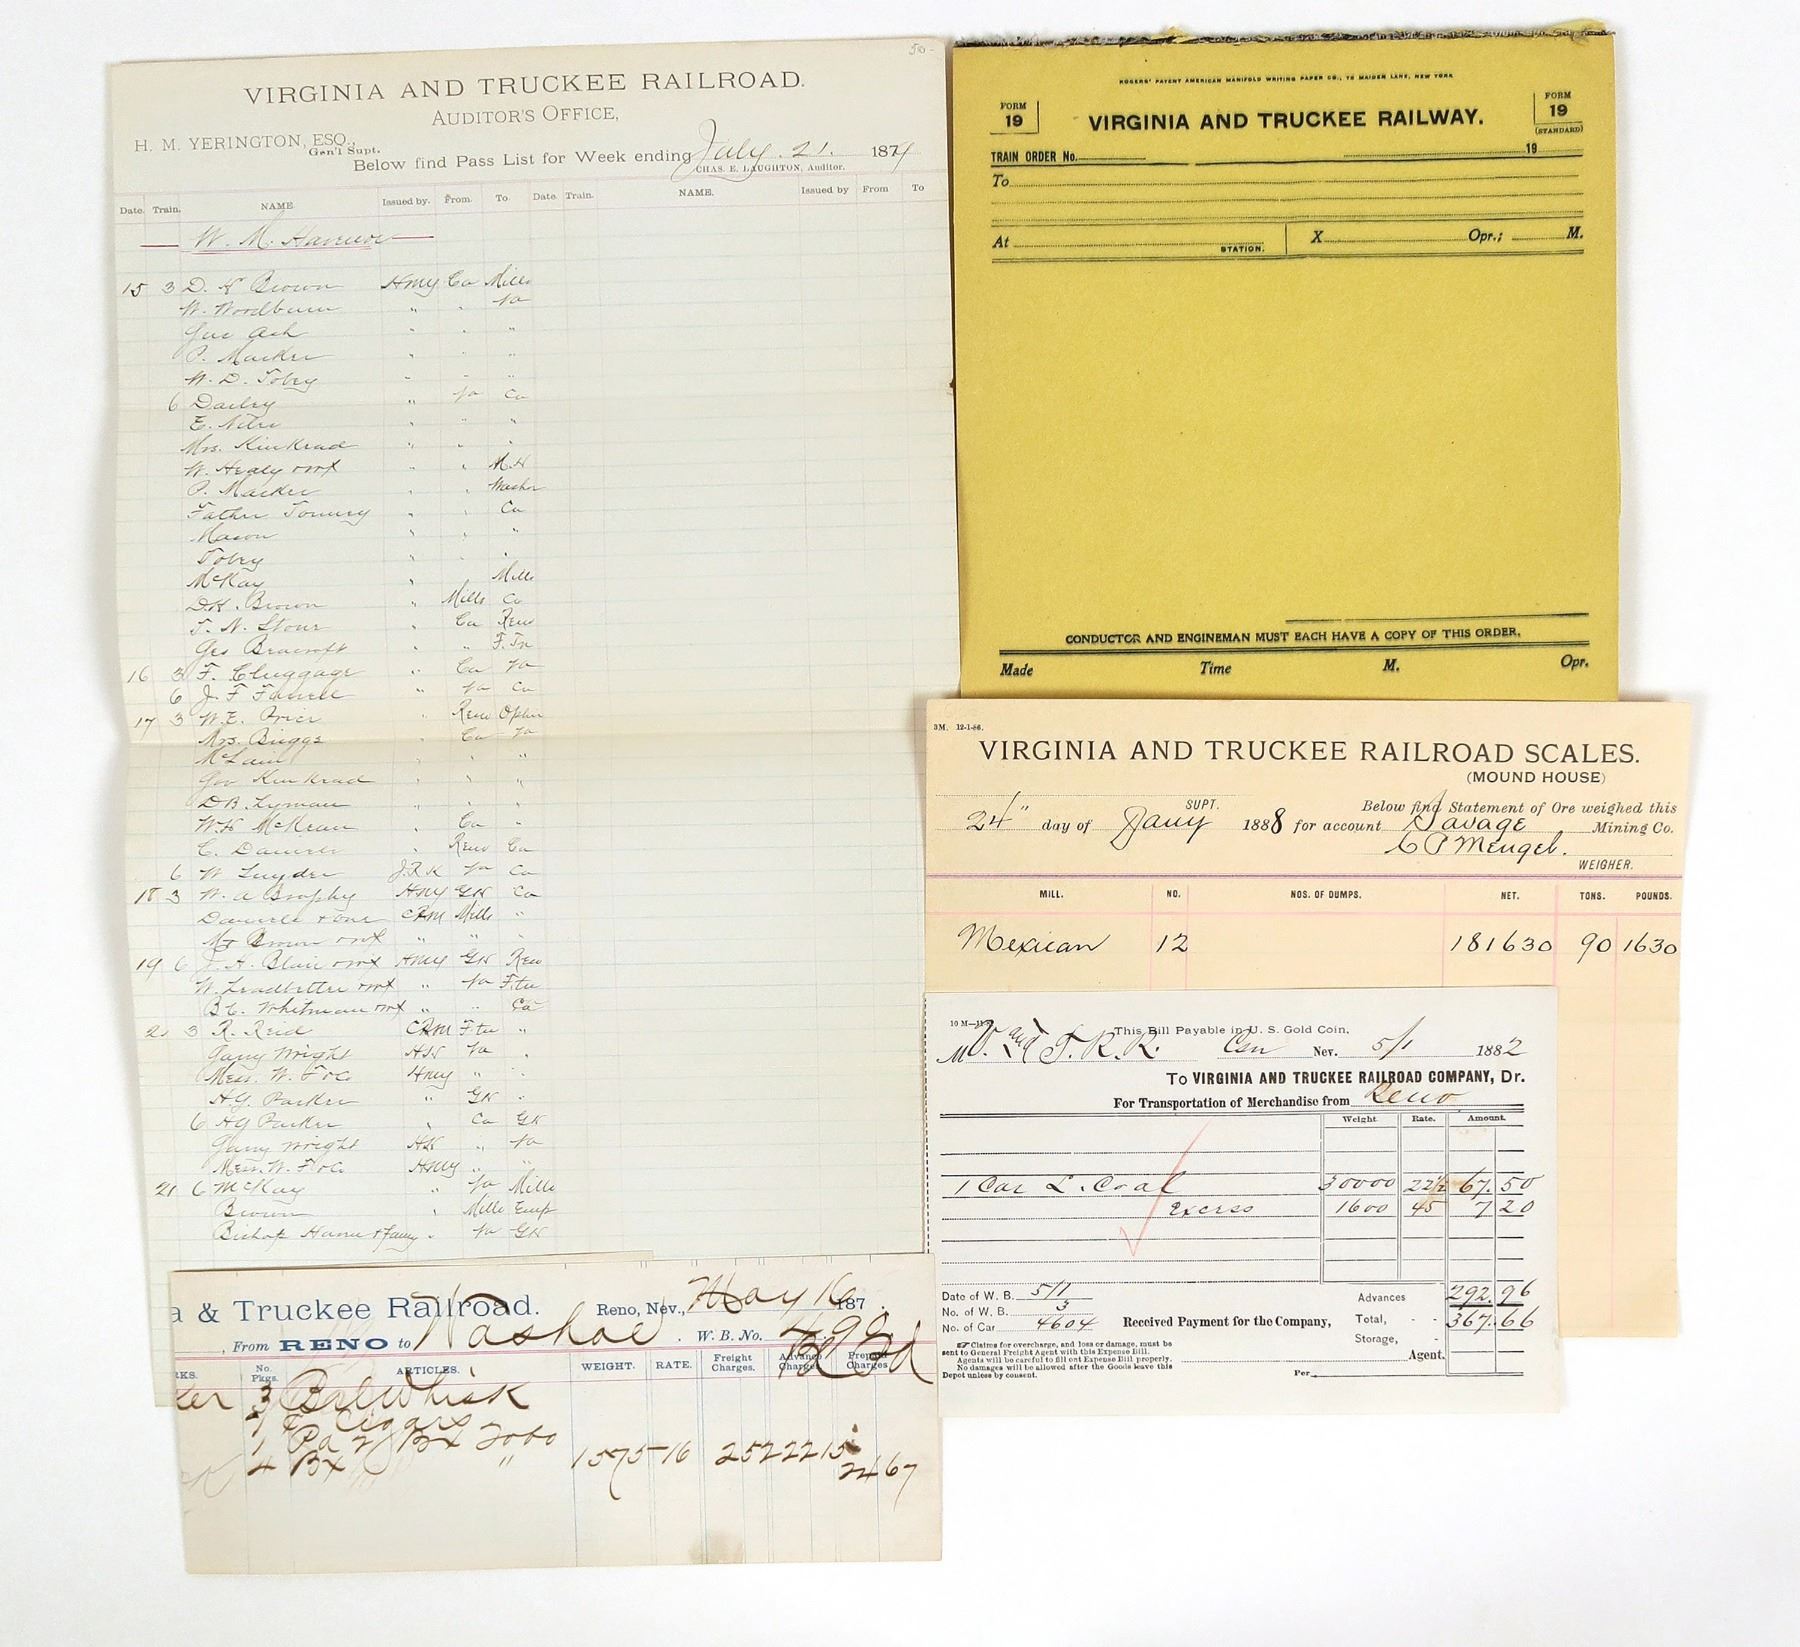 VIRGINIA AND TRUCKEE RAILROAD.
AUDITOR'S OFFICE,
H. M. YERINGTON, ESQ.,
Gen'l Supt.
Below find Pass List for Week ending July 21. 1879
CHAS. E. LAUGHTON, Auditor.
Date. Train. NAME. Issued by. From. To Date. Train. NAME. Issued by From To
W. M.
15 3 D. K Brown HMY Ca Mills
W. Woodburn " " Va
Gus Ash " " "
P. Marker " " "
W. D. Tobey " " "
6 Dailey " Va Ca
E. " " "
Mrs. Kinkead " " "
W. Healy " " M.H
P. Marker " " Washoe
Father " " Ca
Mason " " "
Tobey " " "
McKay " Mills
D.K. Brown " Mills Ca
T. N. Stone " Ca Reno
Geo Bancroft " "
16 3 F. Cluggage " Ca Va
6 J. F Farrell " Va Ca
17 3 W.E. Price " Reno Ophir
Mrs. Briggs " Ca Va
McLain " " "
Gov Kinkead " " "
D.B. Lyman " " "
W.H McKean " Ca "
C. Daniels " Reno Ca
6 W Snyder J.R.K Va Ca
18 3 W. A Brophy HMY GH Ca
Daniels + one CRM Mills "
Mr Brown " " "
19 6 J. A. Blair HMY GH Reno
W. Leadbetter " Va
B C. Whitman " " Ca
21 3 R. Reid CRM "
Garry Wright HH Va "
Mess. W. F & Co HMY " "
H.G. Parker " GH "
6 HG Parker " Ca GH
Garry Wright HH " Va
Mess. W. F & Co HMY " "
21 6 McKay " Va Mills
Brown " Mills
Bishop + " Va GH
ROGERS' PATENT AMERICAN MANIFOLD WRITING PAPER CO., 75 MAIDEN LANE, NEW YORK
FORM 19
VIRGINIA AND TRUCKEE RAILWAY.
FORM 19 (STANDARD)
TRAIN ORDER No. 19
To
At STATION. X Opr.; M.
CONDUCTOR AND ENGINEMAN MUST EACH HAVE A COPY OF THIS ORDER.
Made Time M. Opr.
3M. 12-1-86.
VIRGINIA AND TRUCKEE RAILROAD SCALES.
(MOUND HOUSE)
SUPT. Below find Statement of Ore weighed this
24" day of Jany 1888 for account Savage Mining Co.
C P Mengel.
WEIGHER.
MILL. NO. NOS. OF DUMPS. NET. TONS. POUNDS.
Mexican 12 181630 90 1630
This Bill Payable in U. S. Gold Coin,
M V. and T. R. R. Csn Nev. 5/1 1882
To VIRGINIA AND TRUCKEE RAILROAD COMPANY, Dr.
For Transportation of Merchandise from Reno
Weight. Rate. Amount.
1 Car L. Coal 30000 22½ 67.50
Excess 1600 45 7 20
Date of W. B. 5/1 Advances 292.96
No. of W. B. 3
No. of Car 4604 Received Payment for the Company, Total, 367.66
Storage,
Claims for overcharge, and loss or damage, must be
sent to General Freight Agent with this Expense Bill.
Agents will be careful to fill out Expense Bill properly. Agent.
No damages will be allowed after the Goods leave this
Depot unless by consent. Per
a & Truckee Railroad. Reno, Nev., May 16 187 .
, From RENO to Washoe . W. B. No. 4.98
RKS. No. Pkgs. ARTICLES. WEIGHT. RATE. Freight Charges. Advance Charges. Prepaid Charges.
3 Bbl Whisk
1 C Cigars
1 Pa 2 Bx Tobo
4 Bx " 1575 16 252 2215
2467